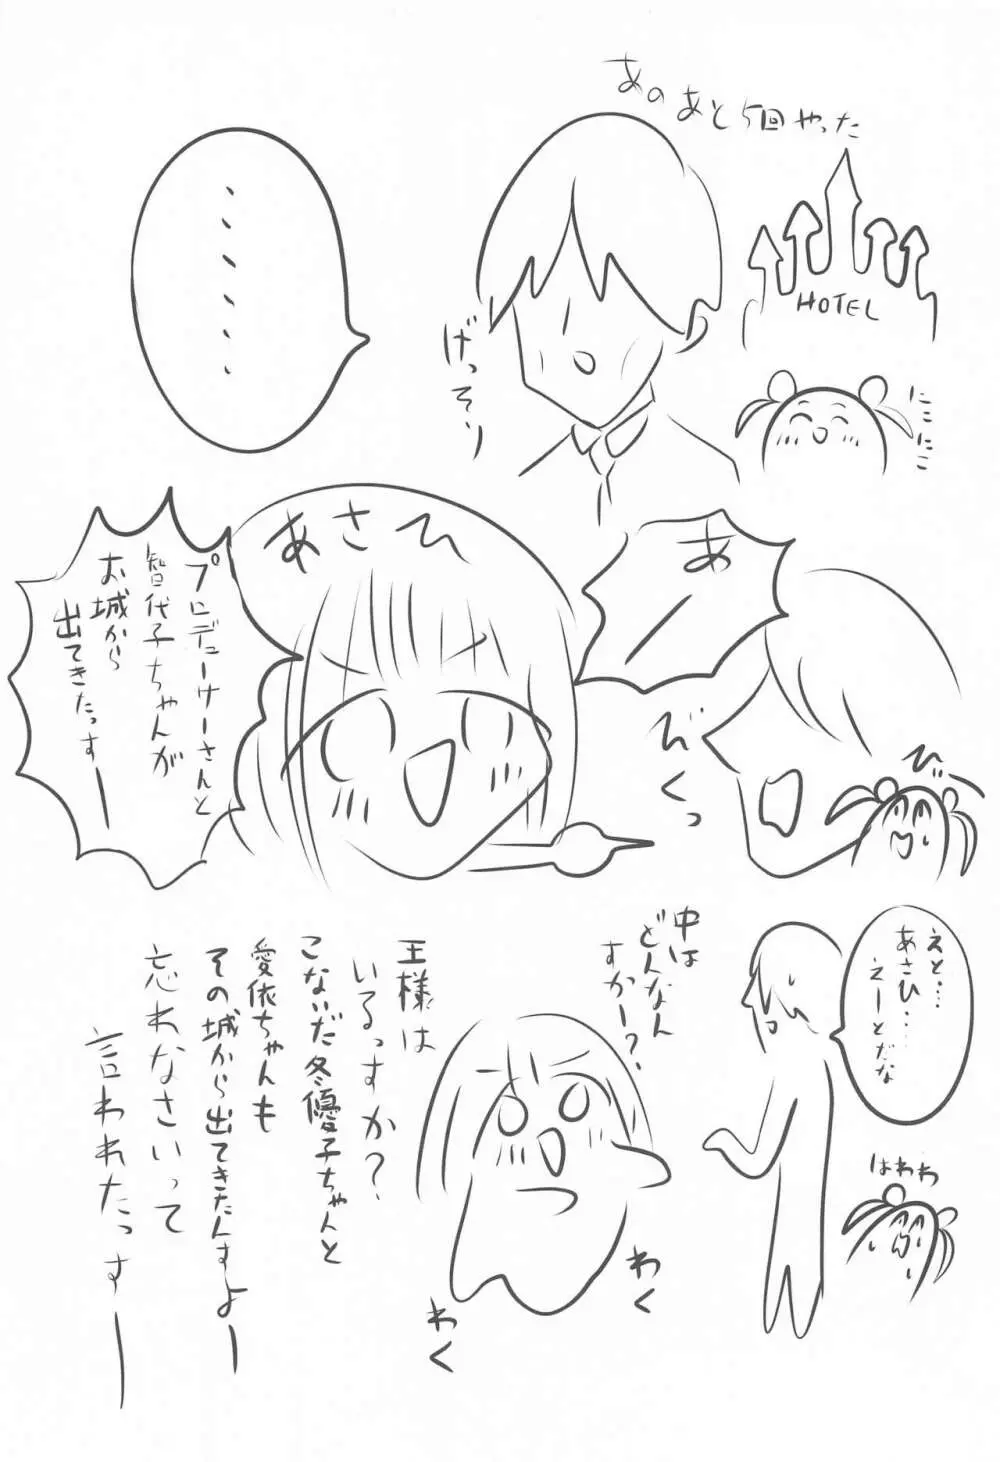 あのあと5回やった
HOTEL
にこにこ
げっそり
・・・・・・
あ
びくっ
びく
あさひ
プロデューサーさんと
智代子ちゃんが
お城から
出てきたっすーー
えと…
あさひ……
えーとだな
はわわ
中は
どんなん
すかー?
わく
わく
王様は
いるっすか?
こないだ冬優子ちゃんと
愛依ちゃんも
その城から出てきたんすよー
忘れなさいって
言われたっすー